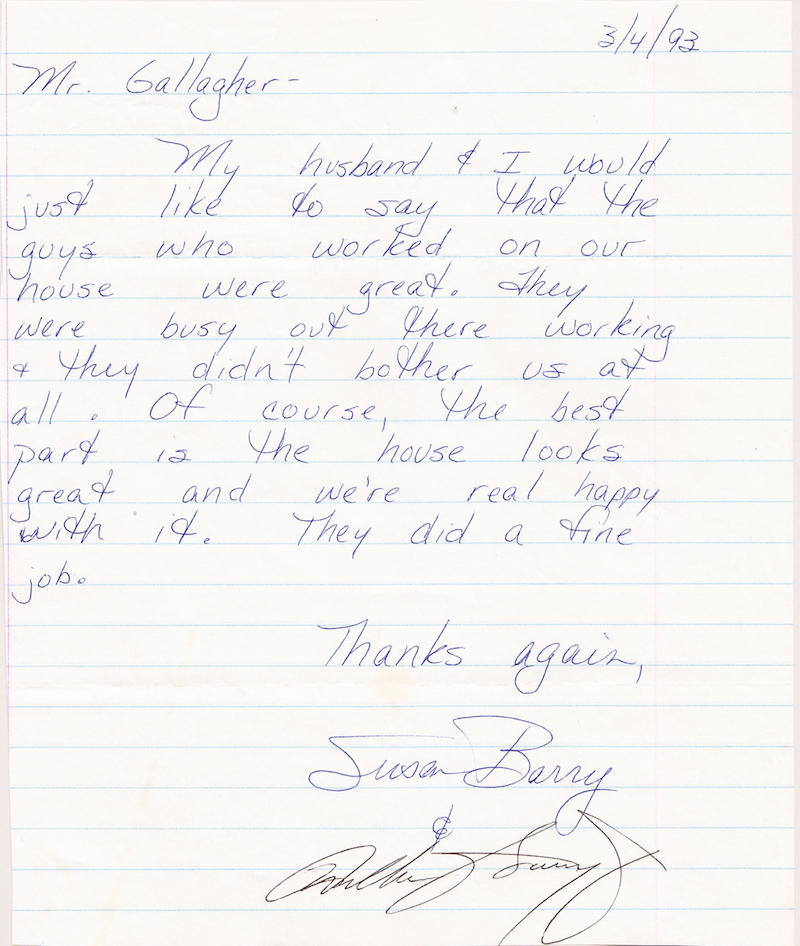 3/4/93
Mr. Gallagher-
My husband & I would
just like to say that the
guys who worked on our
house were great. They
were busy out there working
& they didn't bother us at
all. Of course, the best
part is the house looks
great and we're real happy
with it. They did a fine
job.
Thanks again,
Susan Barry
&